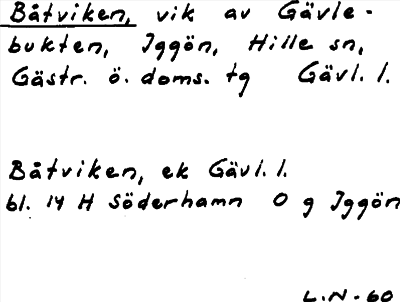 Båtviken, vik av Gävle-
bukten, Iggön, Hille sn,
Gästr. ö. doms. tg Gävl. l.
Båtviken, ek Gävl. l.
bl. 14 H Söderhamn O g Iggön
L.N-60